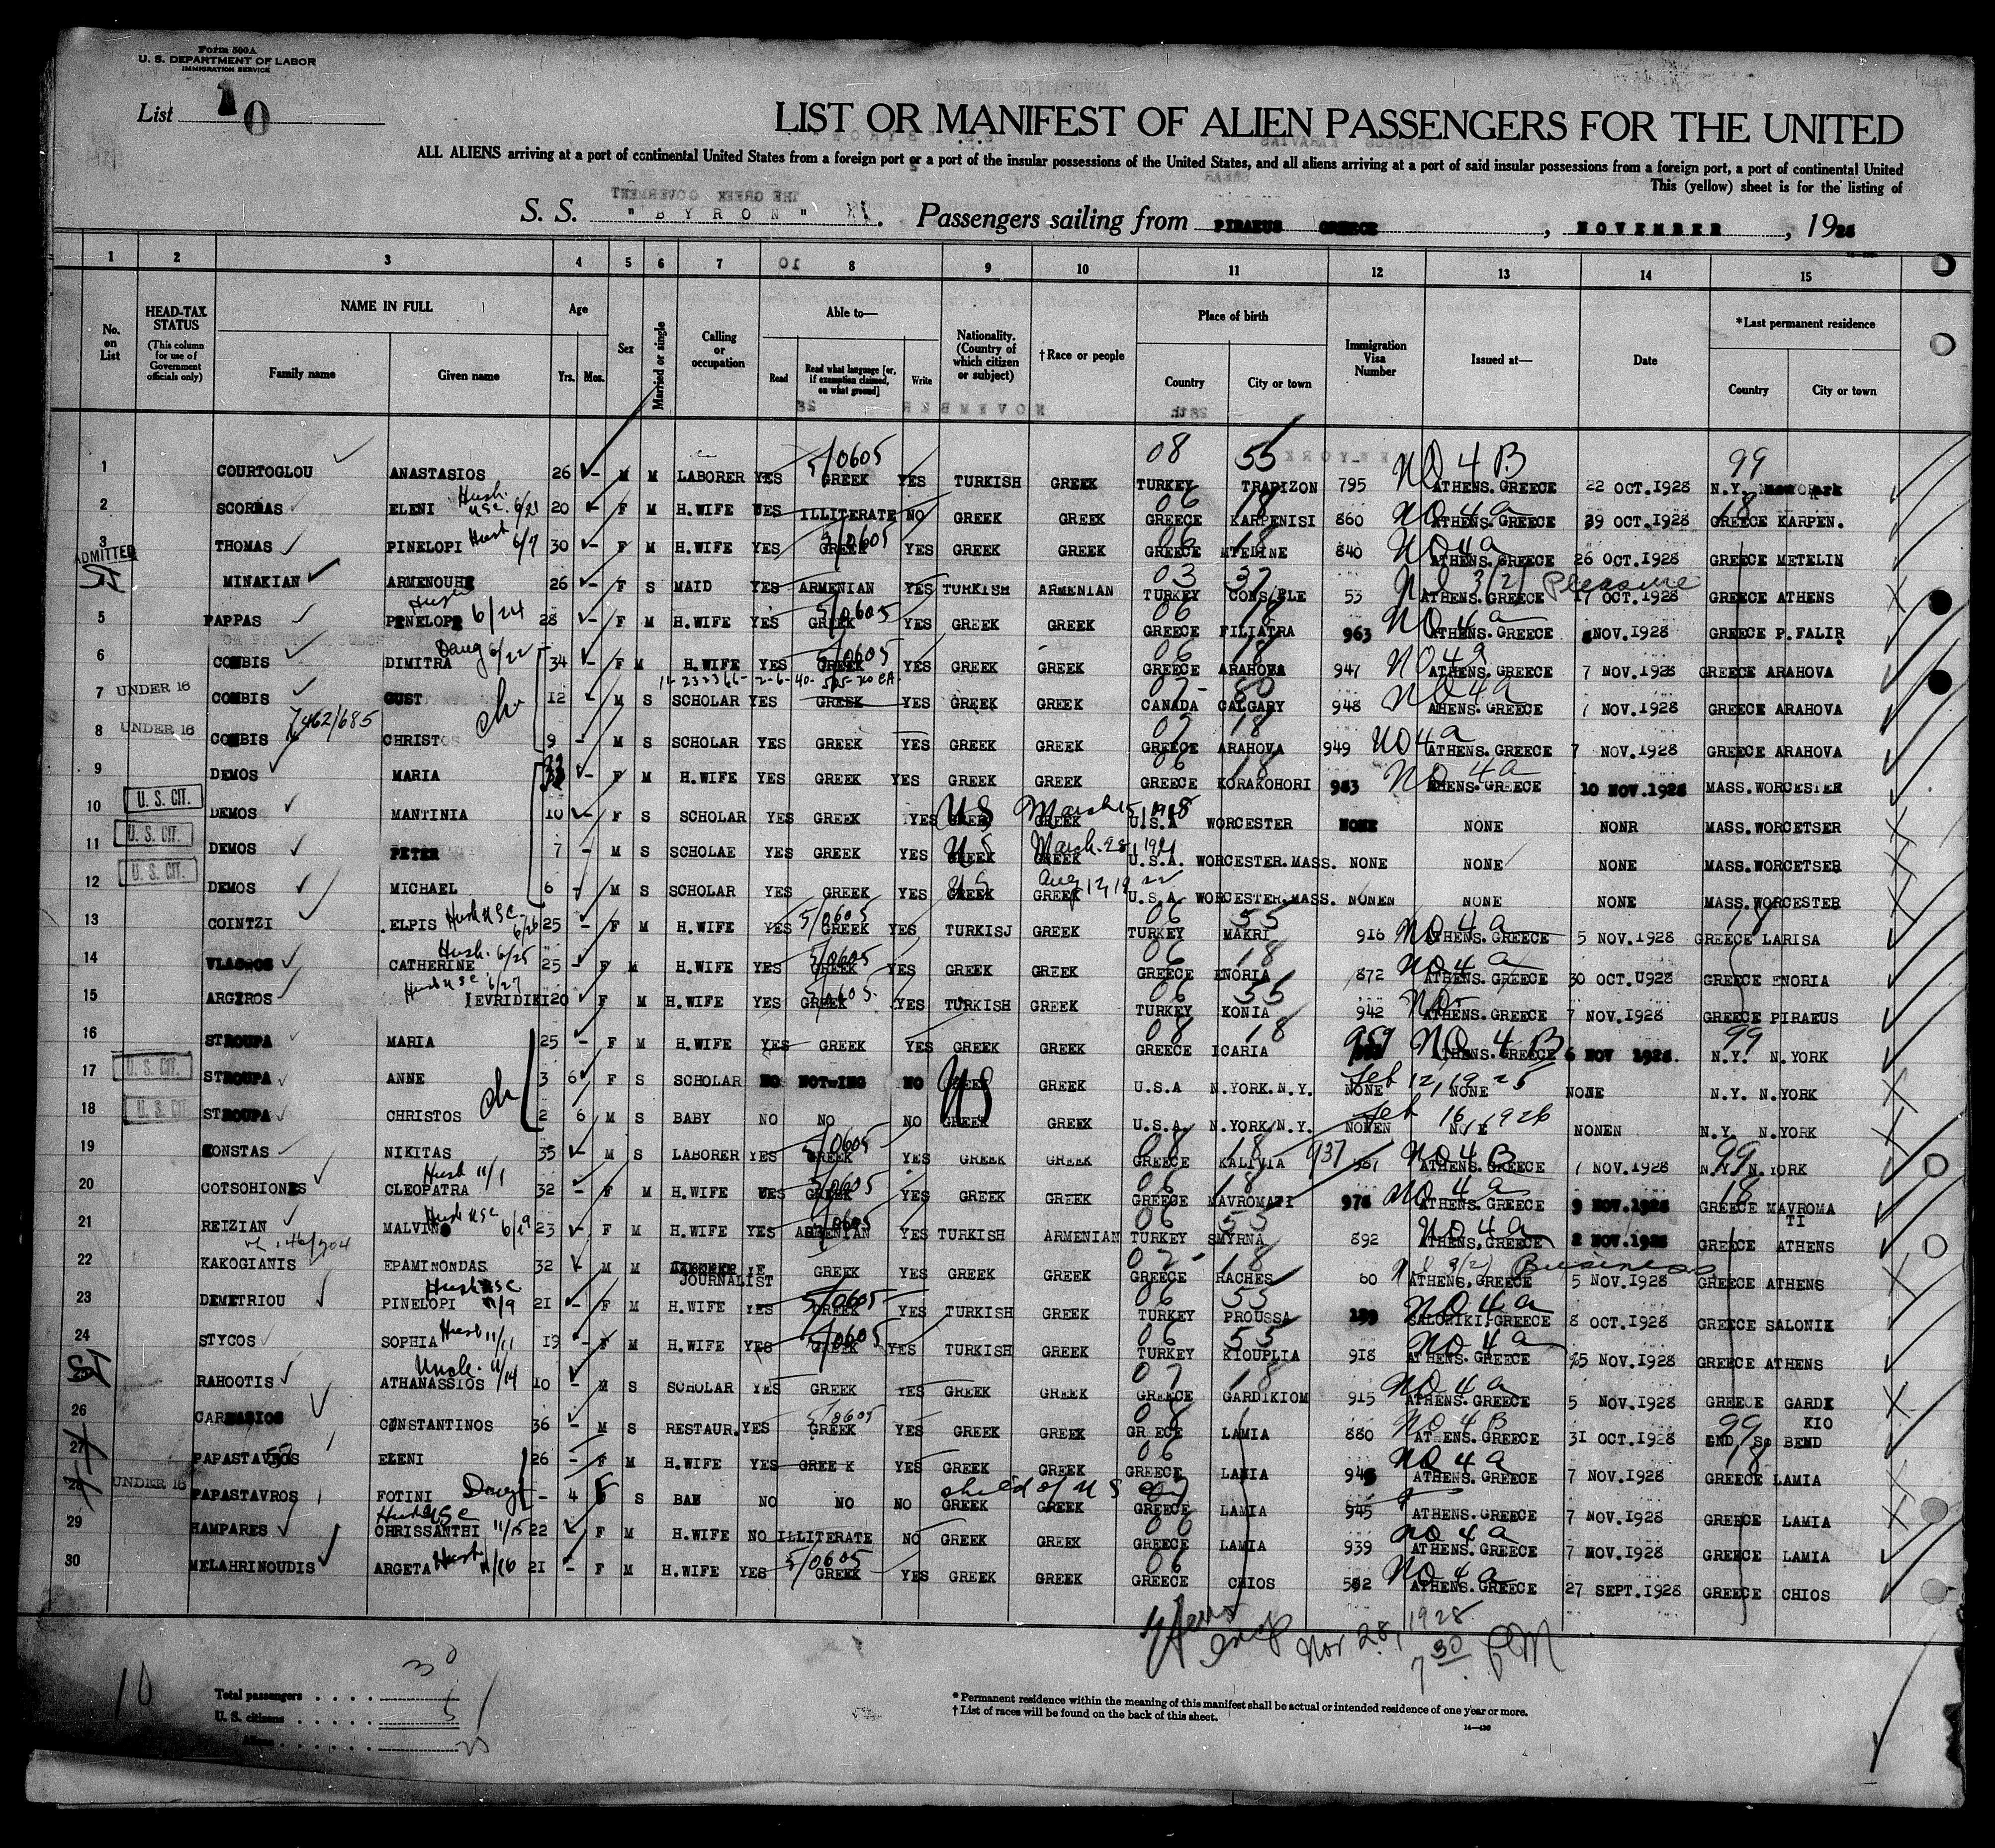 Form 500A
U. S. DEPARTMENT OF LABOR
IMMIGRATION SERVICE
List 10
LIST OR MANIFEST OF ALIEN PASSENGERS FOR THE UNITED
ALL ALIENS arriving at a port of continental United States from a foreign port or a port of the insular possessions of the United States, and all aliens arriving at a port of said insular possessions from a foreign port, a port of continental United
This (yellow) sheet is for the listing of
S. S. "BYRON". Passengers sailing from PIRAEUS GREECE, NOVEMBER, 1928
1 2 3 4 5 6 7 8 9 10 11 12 13 14 15
No. on List
HEAD-TAX STATUS (This column for use of Government officials only)
NAME IN FULL Family name Given name
Age Yrs. Mos.
Sex
Married or single
Calling or occupation
Able to— Read Read what language [or, if exemption claimed, on what ground] Write
Nationality. (Country of which citizen or subject)
†Race or people
Place of birth Country City or town
Immigration Visa Number
Issued at—
Date
*Last permanent residence Country City or town
08 55 NQ 4 B 99
1 COURTOGLOU ANASTASIOS 26 - M M LABORER YES 5/0605 GREEK YES TURKISH GREEK TURKEY TRAPIZON 795 ATHENS.GREECE 22 OCT.1928 N.Y.
2 SCORDAS ELENI Husb. USC. 6/21 20 - F M H.WIFE YES ILLITERATE NO GREEK GREEK GREECE KARPENISI 860 NQ 4 a ATHENS.GREECE 29 OCT.1928 GREECE KARPEN.
3 THOMAS PINELOPI Husb 6/7 30 - F M H.WIFE YES 5/0605 GREEK YES GREEK GREEK GREECE MTELINE 840 NQ 4 a ATHENS.GREECE 26 OCT.1928 GREECE METELIN
ADMITTED
MINAKIAN ARMENOUHE 26 - F S MAID YES ARMENIAN YES TURKISH ARMENIAN TURKEY CONS/PLE 53 3(2) Pleasure ATHENS.GREECE 17 OCT.1928 GREECE ATHENS
5 PAPPAS PENELOPE Husb 6/24 28 - F M H.WIFE YES 5/0605 GREEK YES GREEK GREEK GREECE FILIATRA 963 NQ 4 a ATHENS.GREECE 8 NOV.1928 GREECE P.FALIR
6 COMBIS DIMITRA Daug 6/22 34 - F M H.WIFE YES 5/0605 GREEK YES GREEK GREEK GREECE ARAHOVA 947 NQ 4 a ATHENS.GREECE 7 NOV.1928 GREECE ARAHOVA
7 UNDER 16 COMBIS GUST 12 - M S SCHOLAR YES GREEK YES GREEK GREEK CANADA CALGARY 948 NQ 4 a AHENS.GREECE 7 NOV.1928 GREECE ARAHOVA
8 UNDER 16 COMBIS 7462/685 CHRISTOS ch 9 - M S SCHOLAR YES GREEK YES GREEK GREEK GREECE ARAHOVA 949 NQ 4 a ATHENS.GREECE 7 NOV.1928 GREECE ARAHOVA
9 DEMOS MARIA - F M H.WIFE YES GREEK YES GREEK GREEK GREECE KORAKOHORI 983 NQ 4 a AHENS.GREECE 10 NOV.1928 MASS.WORCESTER
10 U. S. CIT. DEMOS MANTINIA 10 - F S SCHOLAR YES GREEK YES US GREEK March 15, 1918 U.S.A WORCESTER NONE NONE NONR MASS.WORCETSER
11 U. S. CIT. DEMOS PETER 7 - M S SCHOLAE YES GREEK YES US GREEK March 28, 1921 U.S.A. WORCESTER.MASS. NONE NONE NONE MASS.WORCETSER
12 U. S. CIT. DEMOS MICHAEL 6 - M S SCHOLAR YES GREEK YES US GREEK Aug 12, 1922 U.S.A WORCESTER.MASS. NONEN NONE NONE MASS.WORCESTER
13 COINTZI ELPIS Husb USC 6/26 25 - F M H.WIFE YES 5/0605 GREEK YES TURKISJ GREEK TURKEY MAKRI 916 NQ 4 a ATHENS.GREECE 5 NOV.1928 GREECE LARISA
14 CATHERINE Husb. 6/25 25 - F M H.WIFE YES 5/0605 GREEK YES GREEK GREEK GREECE ENORIA 872 NQ 4 a ATHENS.GREECE 30 OCT.U928 GREECE ENORIA
15 ARGIROS Husb USC 6/27 IEVRIDIKI 20 F M H.WIFE YES 5/0605 GREEK YES TURKISH GREEK TURKEY KONIA 942 NQ ATHENS.GREECE 7 NOV.1928 GREECE PIRAEUS
16 STROUPA MARIA 25 - F M H.WIFE YES GREEK YES GREEK GREEK GREECE ICARIA 959 NQ 4 B ATHENS.GREECE 6 NOV 1928. N.Y. N.YORK
17 U. S. CIT. STROUPA ANNE 3 6 F S SCHOLAR NO NOTHING NO US GREEK GREEK U.S.A N.YORK.N.Y. NONE Feb 12, 1925 NONE NONE N.Y. N.YORK
18 U. S. CIT. STROUPA CHRISTOS ch 2 6 M S BABY NO NO NO GREEK GREEK U.S.A. N.YORK/N.Y. NONEN Feb 16, 1926 NONEN N.Y. N.YORK
19 KONSTAS NIKITAS 35 - M S LABORER YES 5/0605 GREEK YES GREEK GREEK GREECE KALIVIA 937 NQ 4 B ATHENS.GREECE 7 NOV.1928 N.Y. N.YORK
20 COTSOHIONES CLEOPATRA Husb 11/1 32 - F M H.WIFE YES 5/0605 GREEK YES GREEK GREEK GREECE MAVROMATI 978 NQ 4 a ATHENS.GREECE 9 NOV.1928 GREECE MAVROMATI
21 REIZIAN MALVINO Husb USC 6/29 23 - F M H.WIFE YES 5/0605 ARMENIAN YES TURKISH ARMENIAN TURKEY SMYRNA 892 NQ 4 a ATHENS.GREECE 2 NOV.1928 GREECE ATHENS
22 KAKOGIANIS EPAMINONDAS 32 - M M JOURNALIST GREEK YES GREEK GREEK GREECE RACHES 60 3(2) Business ATHENS.GREECE 5 NOV.1928 GREECE ATHENS
23 DEMETRIOU PINELOPI Husb USC 11/9 21 - F M H.WIFE YES 5/0605 GREEK YES TURKISH GREEK TURKEY PROUSSA 199 NQ 4 a SALONIKI.GREECE 8 OCT.1928 GREECE SALONIK
24 STYCOS SOPHIA Husb 11/11 19 - F M H.WIFE YES 5/0605 GREEK YES TURKISH GREEK TURKEY KIOUPLIA 918 NQ 4 a ATHENS.GREECE NOV.1928 GREECE ATHENS
25 RAHOOTIS ATHANASSIOS Uncle. 11/14 10 - M S SCHOLAR YES GREEK YES GREEK GREEK GREECE GARDIKIOM 915 NQ 4 a ATHENS.GREECE 5 NOV.1928 GREECE GARDIKIO
26 CONSTANTINOS 36 - M S RESTAUR. YES 5/0605 GREEK YES GREEK GREEK GR ECE LAMIA 880 NQ 4 B ATHENS.GREECE 31 OCT.1928 IND. So BEND
27 PAPASTAVROS ELENI 26 - F M H.WIFE YES GREEK YES GREEK GREEK GREECE LAMIA 945 NQ 4 a ATHENS.GREECE 7 NOV.1928 GREECE LAMIA
28 UNDER 16 PAPASTAVROS FOTINI Daug - 4 F S BAB NO NO NO child of U S Cit GREEK GREEK GREECE LAMIA 945 ATHENS.GREECE 7 NOV.1928 GREECE LAMIA
29 HAMPARES CHRISSANTHI Husb USC 11/15 22 F M H.WIFE NO ILLITERATE NO GREEK GREEK GREECE LAMIA 939 NQ 4 a ATHENS.GREECE 7 NOV.1928 GREECE LAMIA
30 MELAHRINOUDIS ARGETA Husb 11/16 21 - F M H.WIFE YES 5/0605 GREEK YES GREEK GREEK GREECE CHIOS 592 NQ 4 a ATHENS.GREECE 27 SEPT.1928 GREECE CHIOS
Insp Nov 28, 1928
7 30 PM
10
Total passengers . . . . 30
U. S. citizens . . . . . 5
Aliens . . . . . . 25
* Permanent residence within the meaning of this manifest shall be actual or intended residence of one year or more.
† List of races will be found on the back of this sheet.
14—430